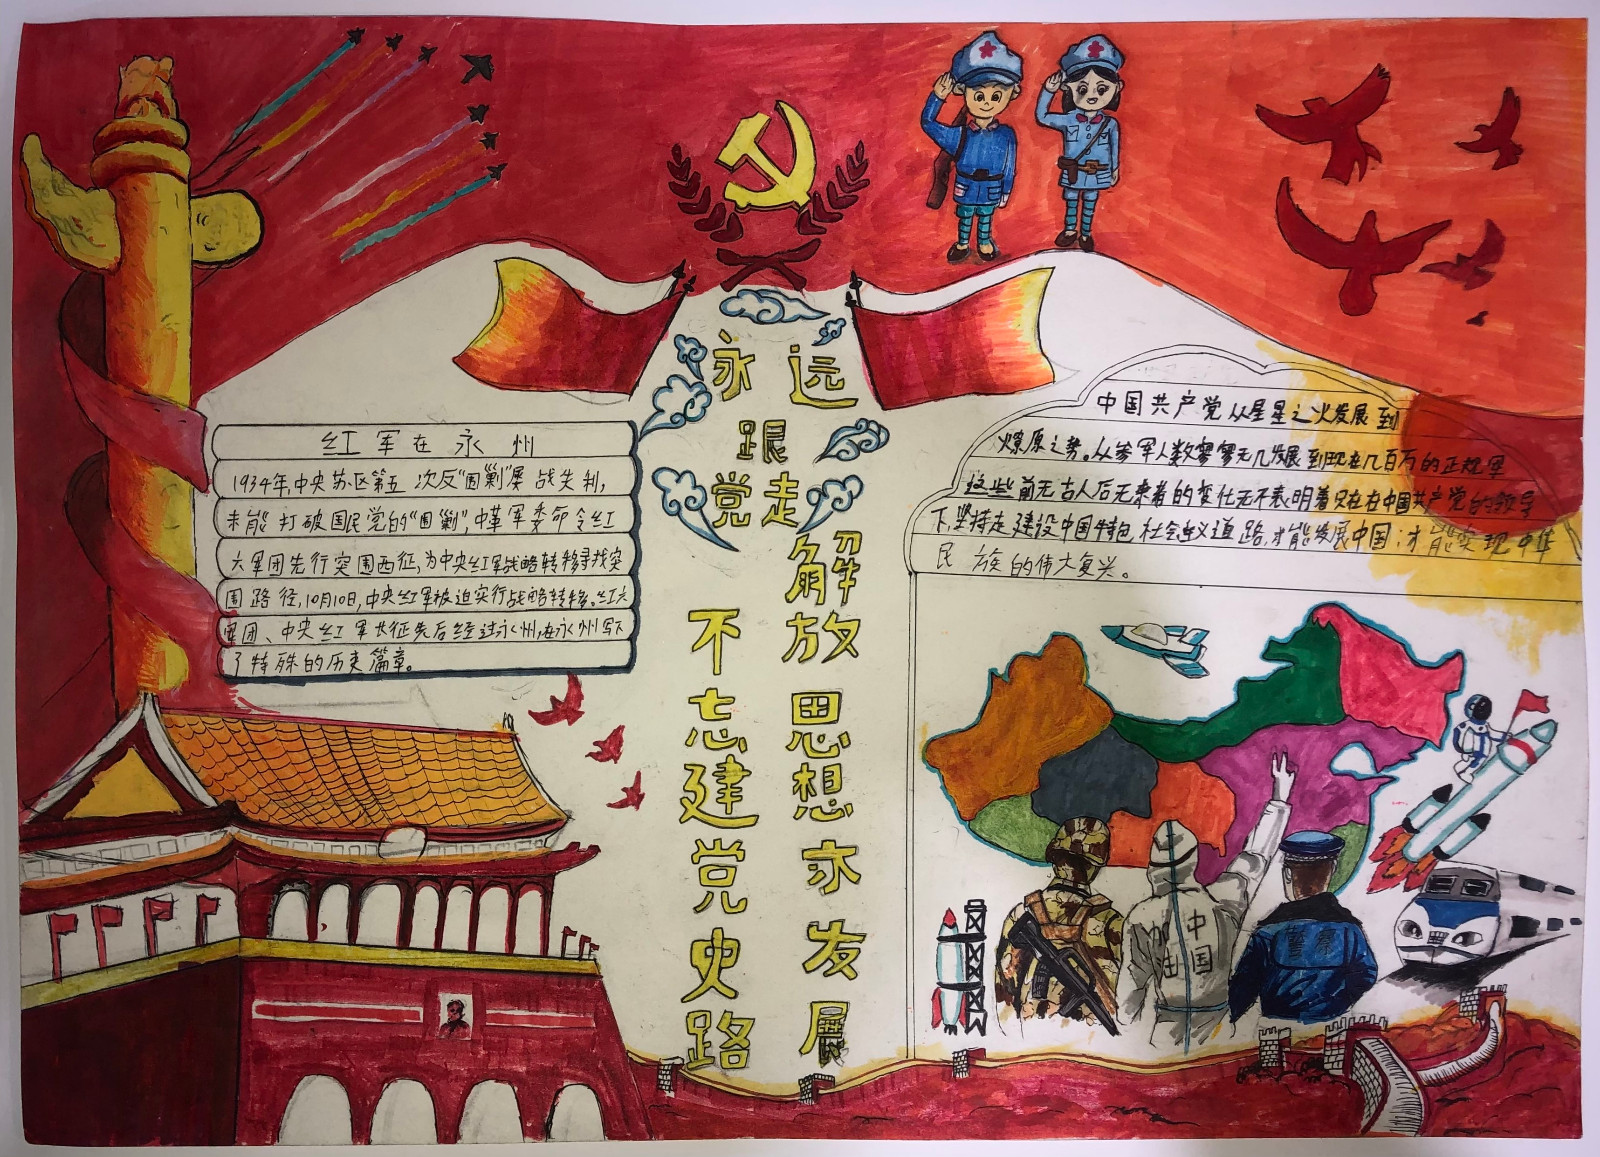 永远
跟
党走
解放思想求发展
不忘建党史路
红军在永州
1934年,中央苏区第五次反"围剿"屡战失利,
未能打破国民党的"围剿",中革军委命令红
六军团先行突围西征,为中央红军战略转移寻找突
围路径,10月10日,中央红军被迫实行战略转移。红六
军团、中央红军长征先后经过永州,在永州写下
了特殊的历史篇章。
中国共产党从星星之火发展到
燎原之势。从参军人数寥寥无几发展到现在几百万的正规军
这些前无古人后无来者的变化无不表明着只在在中国共产党的领导
下,坚持走建设中国特色社会主义道路,才能发展中国;才能实现中华
民族的伟大复兴。
中国
加油
警察